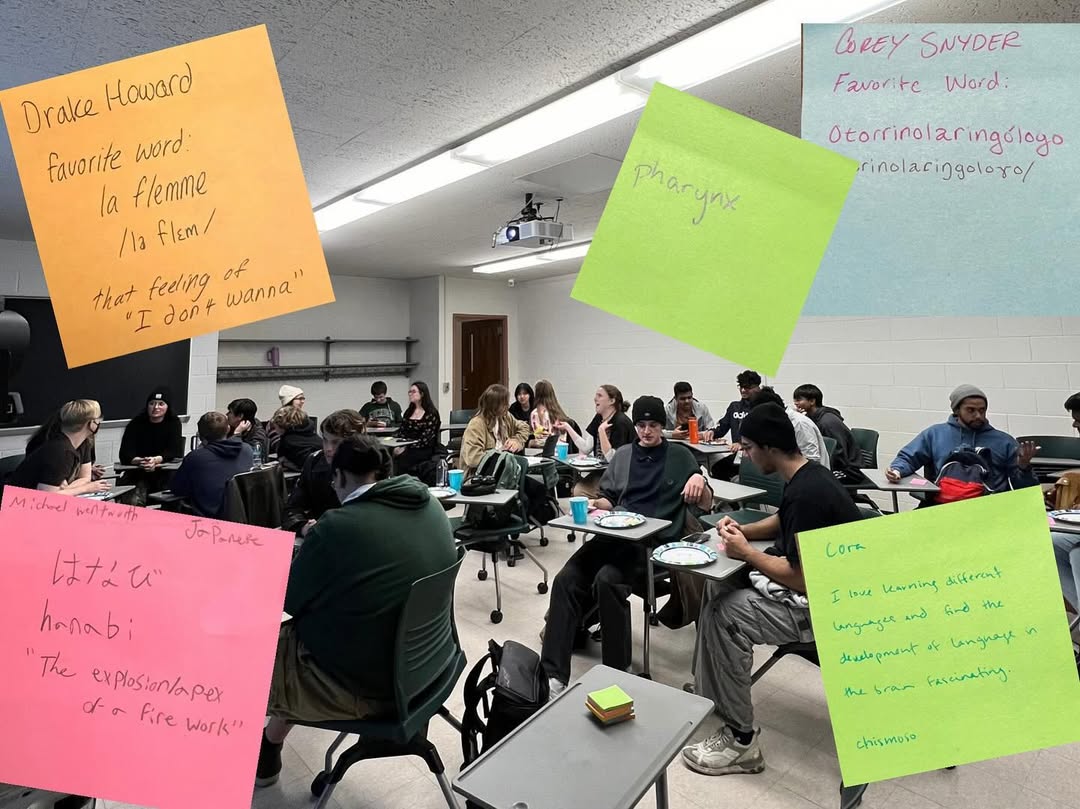 Drake Howard
favorite word:
la flemme
/la flɛm/
that feeling of
"I don't wanna"
pharynx
COREY SNYDER
Favorite Word:
Otorrinolaringólogo
orinolaringoloɣo/
Michael wentworth
Japanese
はなび
hanabi
"The explosion/apex
of a fire work"
Cora
I love learning different
languages and find the
development of language in
the brain fascinating.
chismoso
adidas